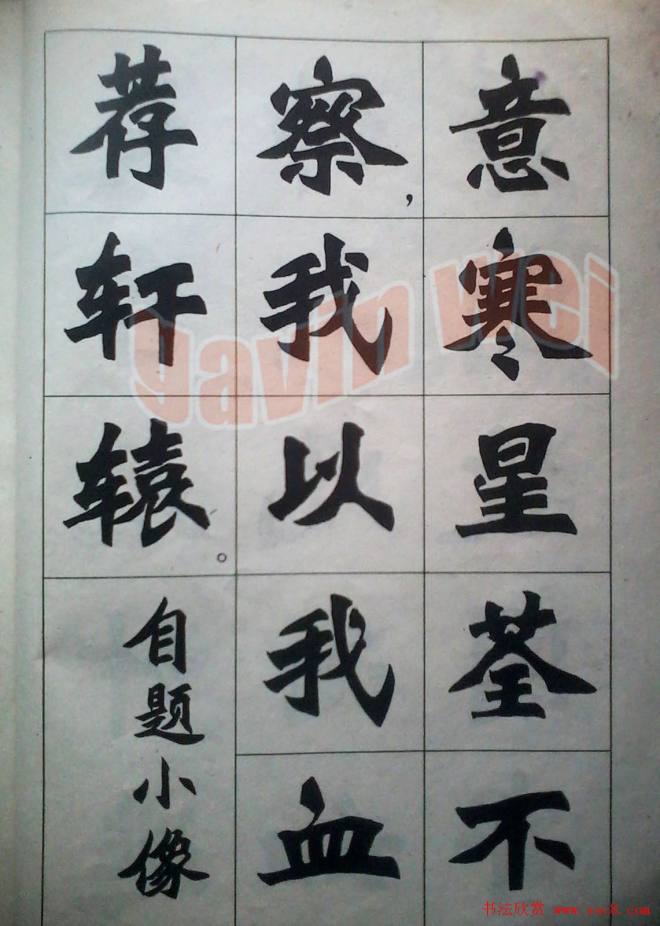 意寒星荃不
察，我以我血
荐轩辕。
自题小像
gavin wei
书法欣赏 www.yac8.com